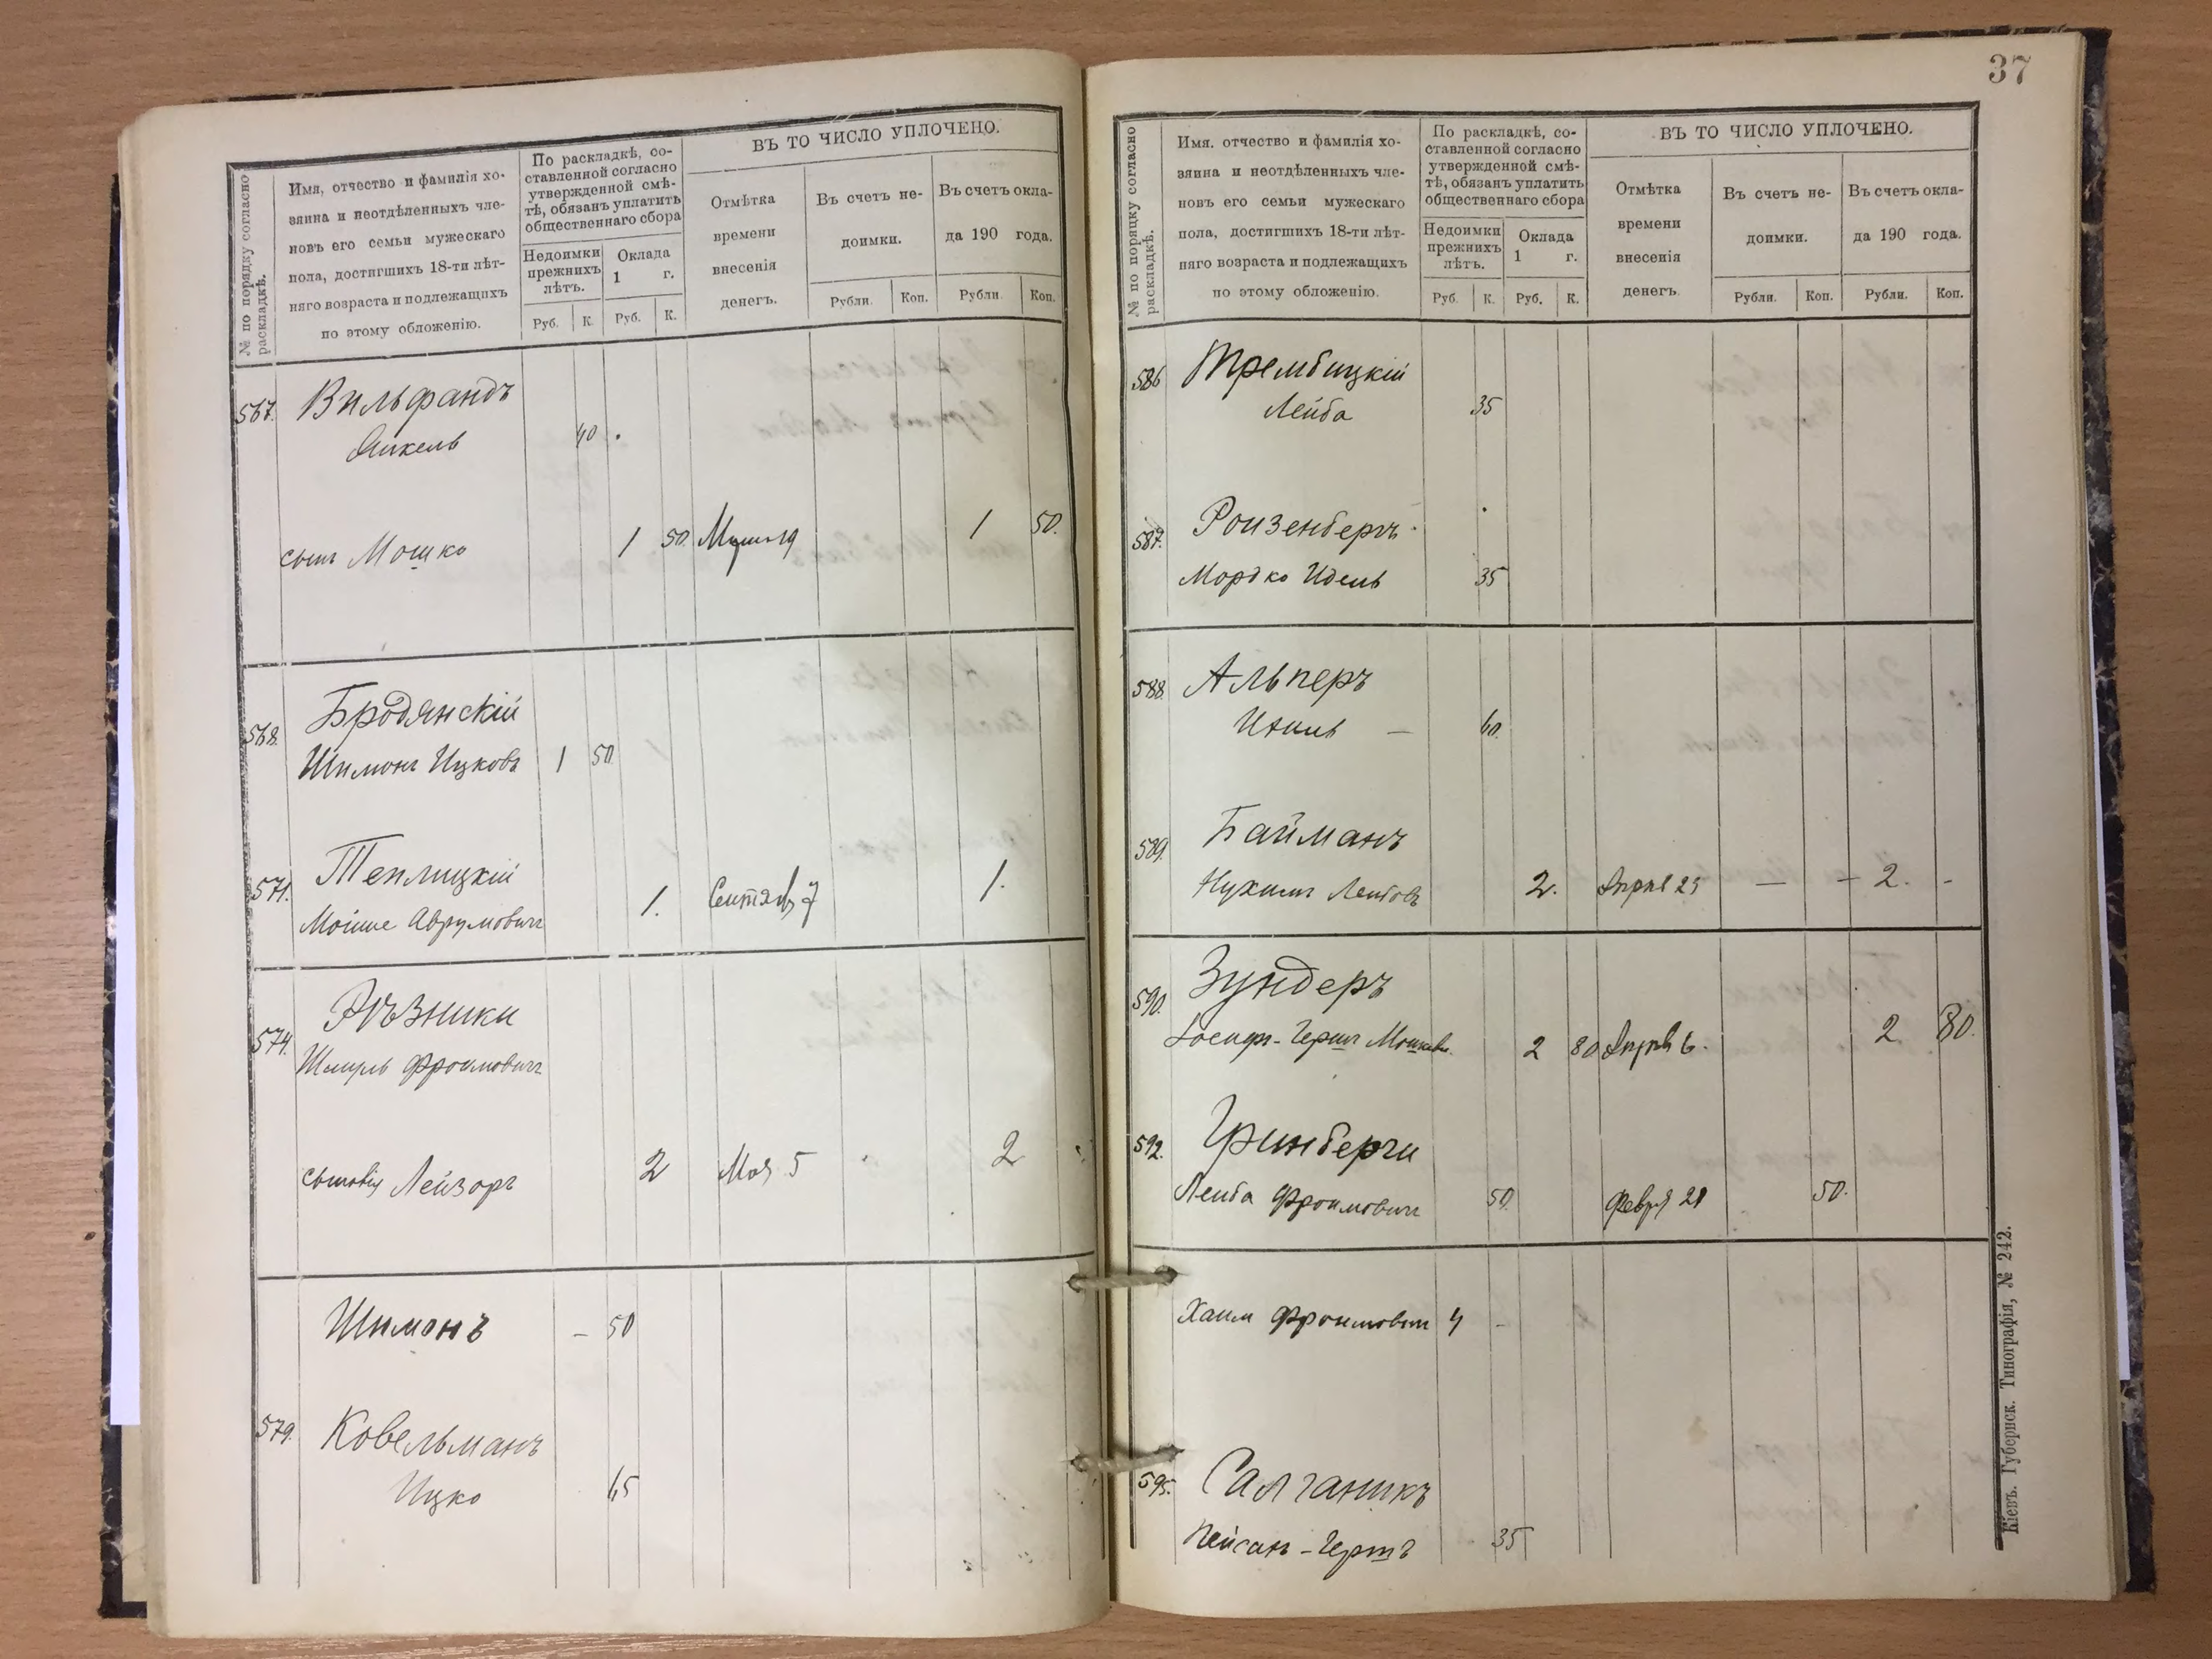 № по порядку согласно
раскладкѣ.
Имя, отчество и фамилія хо-
зяина и неотдѣленныхъ чле-
новъ его семьи мужескаго
пола, достигшихъ 18-ти лѣт-
няго возраста и подлежащихъ
по этому обложенію.
По раскладкѣ, со-
ставленной согласно
утвержденной смѣ-
тѣ, обязанъ уплатить
общественнаго сбора
Недоимки
прежнихъ
лѣтъ.
Оклада
1 г.
Руб. К. Руб. К.
ВЪ ТО ЧИСЛО УПЛОЧЕНО.
Отмѣтка
времени
внесенія
денегъ.
Въ счетъ не-
доимки.
Въ счетъ окла-
да 190 года.
Рубли. Коп. Рубли. Коп.
567. Вильфандъ
Янкель 40
сынъ Мошко 1 50 19 1 50.
568. Бродянскій
Шимонъ Ицковъ 1 50
571. Теплицкій
Мойше Аврумовичъ 1. Сентяб 7 1.
574. Рѣзники
Шмуль Фроимовичъ
сыновія Лейзоръ 2 Мая 5 2
Шимонъ – 50
579. Ковельманъ
Ицко 65
37
№ по порядку согласно
раскладкѣ.
Имя. отчество и фамилія хо-
зяина и неотдѣленныхъ чле-
новъ его семьи мужескаго
пола, достигшихъ 18-ти лѣт-
няго возраста и подлежащихъ
по этому обложенію.
По раскладкѣ, со-
ставленной согласно
утвержденной смѣ-
тѣ, обязанъ уплатить
общественнаго сбора
Недоимки
прежнихъ
лѣтъ.
Оклада
1 г.
Руб. К. Руб. К.
ВЪ ТО ЧИСЛО УПЛОЧЕНО.
Отмѣтка
времени
внесенія
денегъ.
Въ счетъ не-
доимки.
Въ счетъ окла-
да 190 года.
Рубли. Коп. Рубли. Коп.
586 Трембицкій
Лейба 35
587. Роизенбергъ
Мордко Идель 35
588. Альперъ
– 60.
589. Байманъ
Нухимъ Лейбовъ 2. – – 2. -
590. Зундеръ
Іосифъ-Гершъ Мошков. 2 80 Апрѣл 6. 2 80.
592. Гринберги
Лейба Фроимовичъ 50. Февр 21 50.
Хаим Фроимович 4 -
595. Салганикъ
Пейсахъ-Гершъ 35
Кіевъ. Губернск. Типографія, № 242.